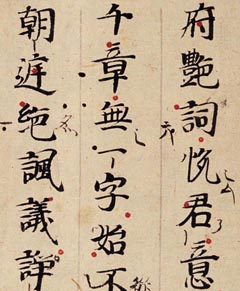 府艶詞悦君意
千章無一字始不
朝廷絶諷議諍